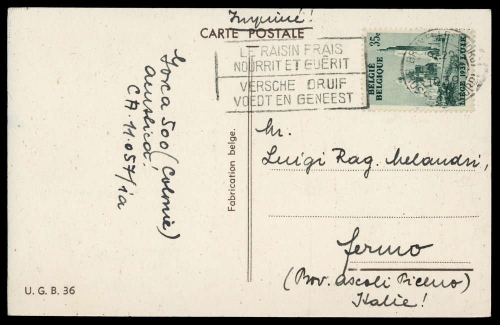 Imprimé!
CARTE POSTALE
LE RAISIN FRAIS
NOURRIT ET GUÉRIT
VERSCHE DRUIF
VOEDT EN GENEEST
35c
BELGIË
BELGIQUE
Gorca 500 (Colonie)
CA. 11.057/1a
Fabrication belge.
Mr.
Luigi Rag. Melandri,
Fermo
(Prov. Ascoli Piceno)
Italie!
U. G. B. 36